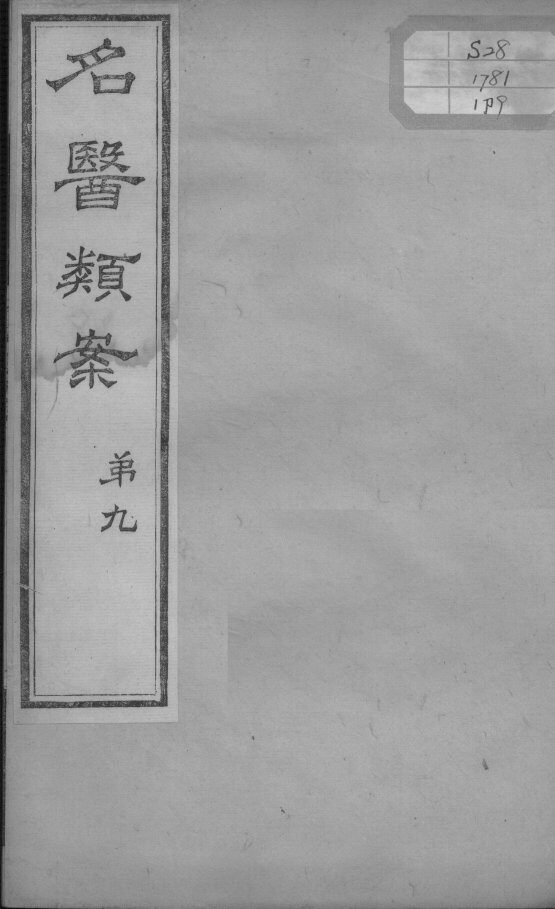 名醫類案
弟九
S28
1781
1:P9